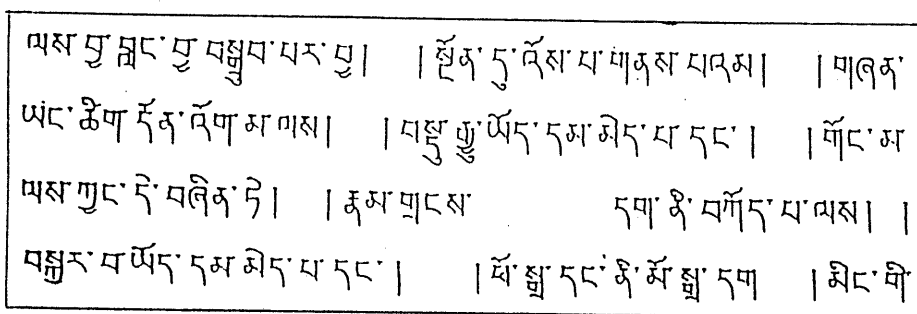 ལས་བྱ་བླང་བྱ་བསྒྲུབ་པར་བྱ། །སྔོན་དུ་འོས་པ་གནས་པའམ། །གཞན་
ཡང་ཚིག་དོན་འོག་མ་ལས། །བསྡུ་རྒྱུ་ཡོད་དམ་མེད་པ་དང་། །གོང་མ་
ལས་ཀྱང་དེ་བཞིན་ཏེ། །རྣམ་གྲངས་ དག་ནི་བཀོད་པ་ལས། །
བསྐྱར་བ་ཡོད་དམ་མེད་པ་དང་། །ཕོ་སྒྲ་དང་ནི་མོ་སྒྲ་དག །མིང་གི་